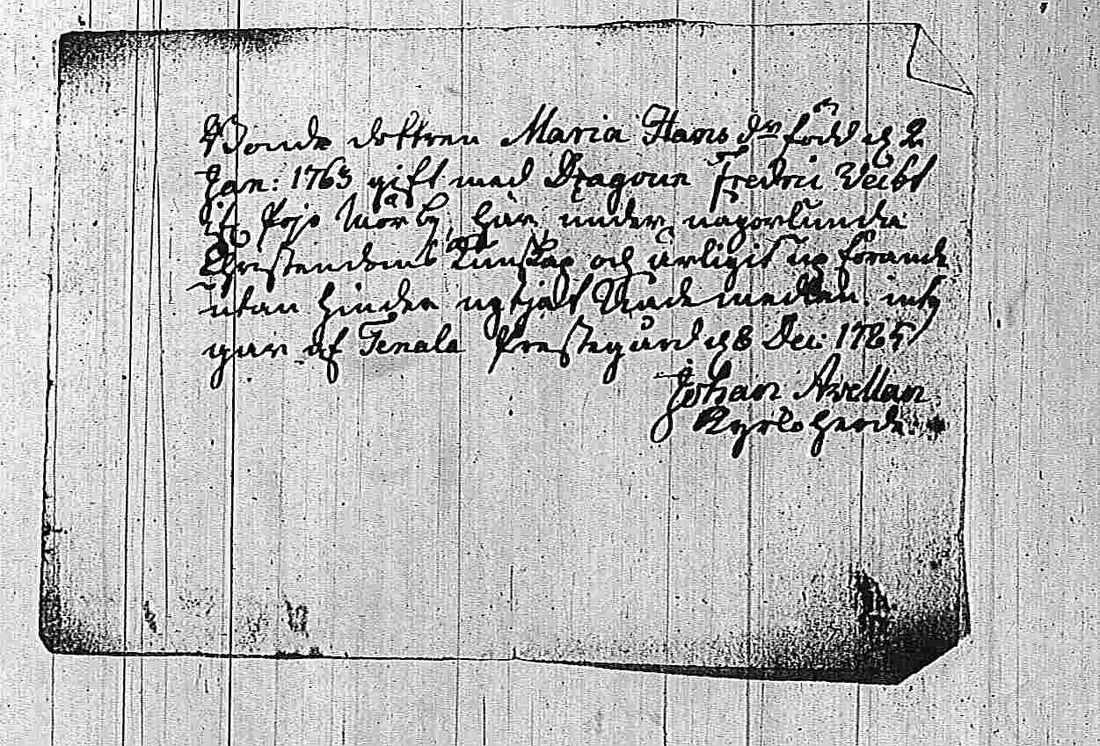 Bonde dottren Maria Hans dr född d 2
Jan: 1763 gift med Dragoun Fredric Veibt
i Pojo Mörby, har, under någorlunda
Christendoms kunskap och ärligit up förande
utan hinder nytjat Nademedlen. inty
gar af Tenala Prestegård d 8 Dec: 1785
Johan Avellan
Kyrkoherde.